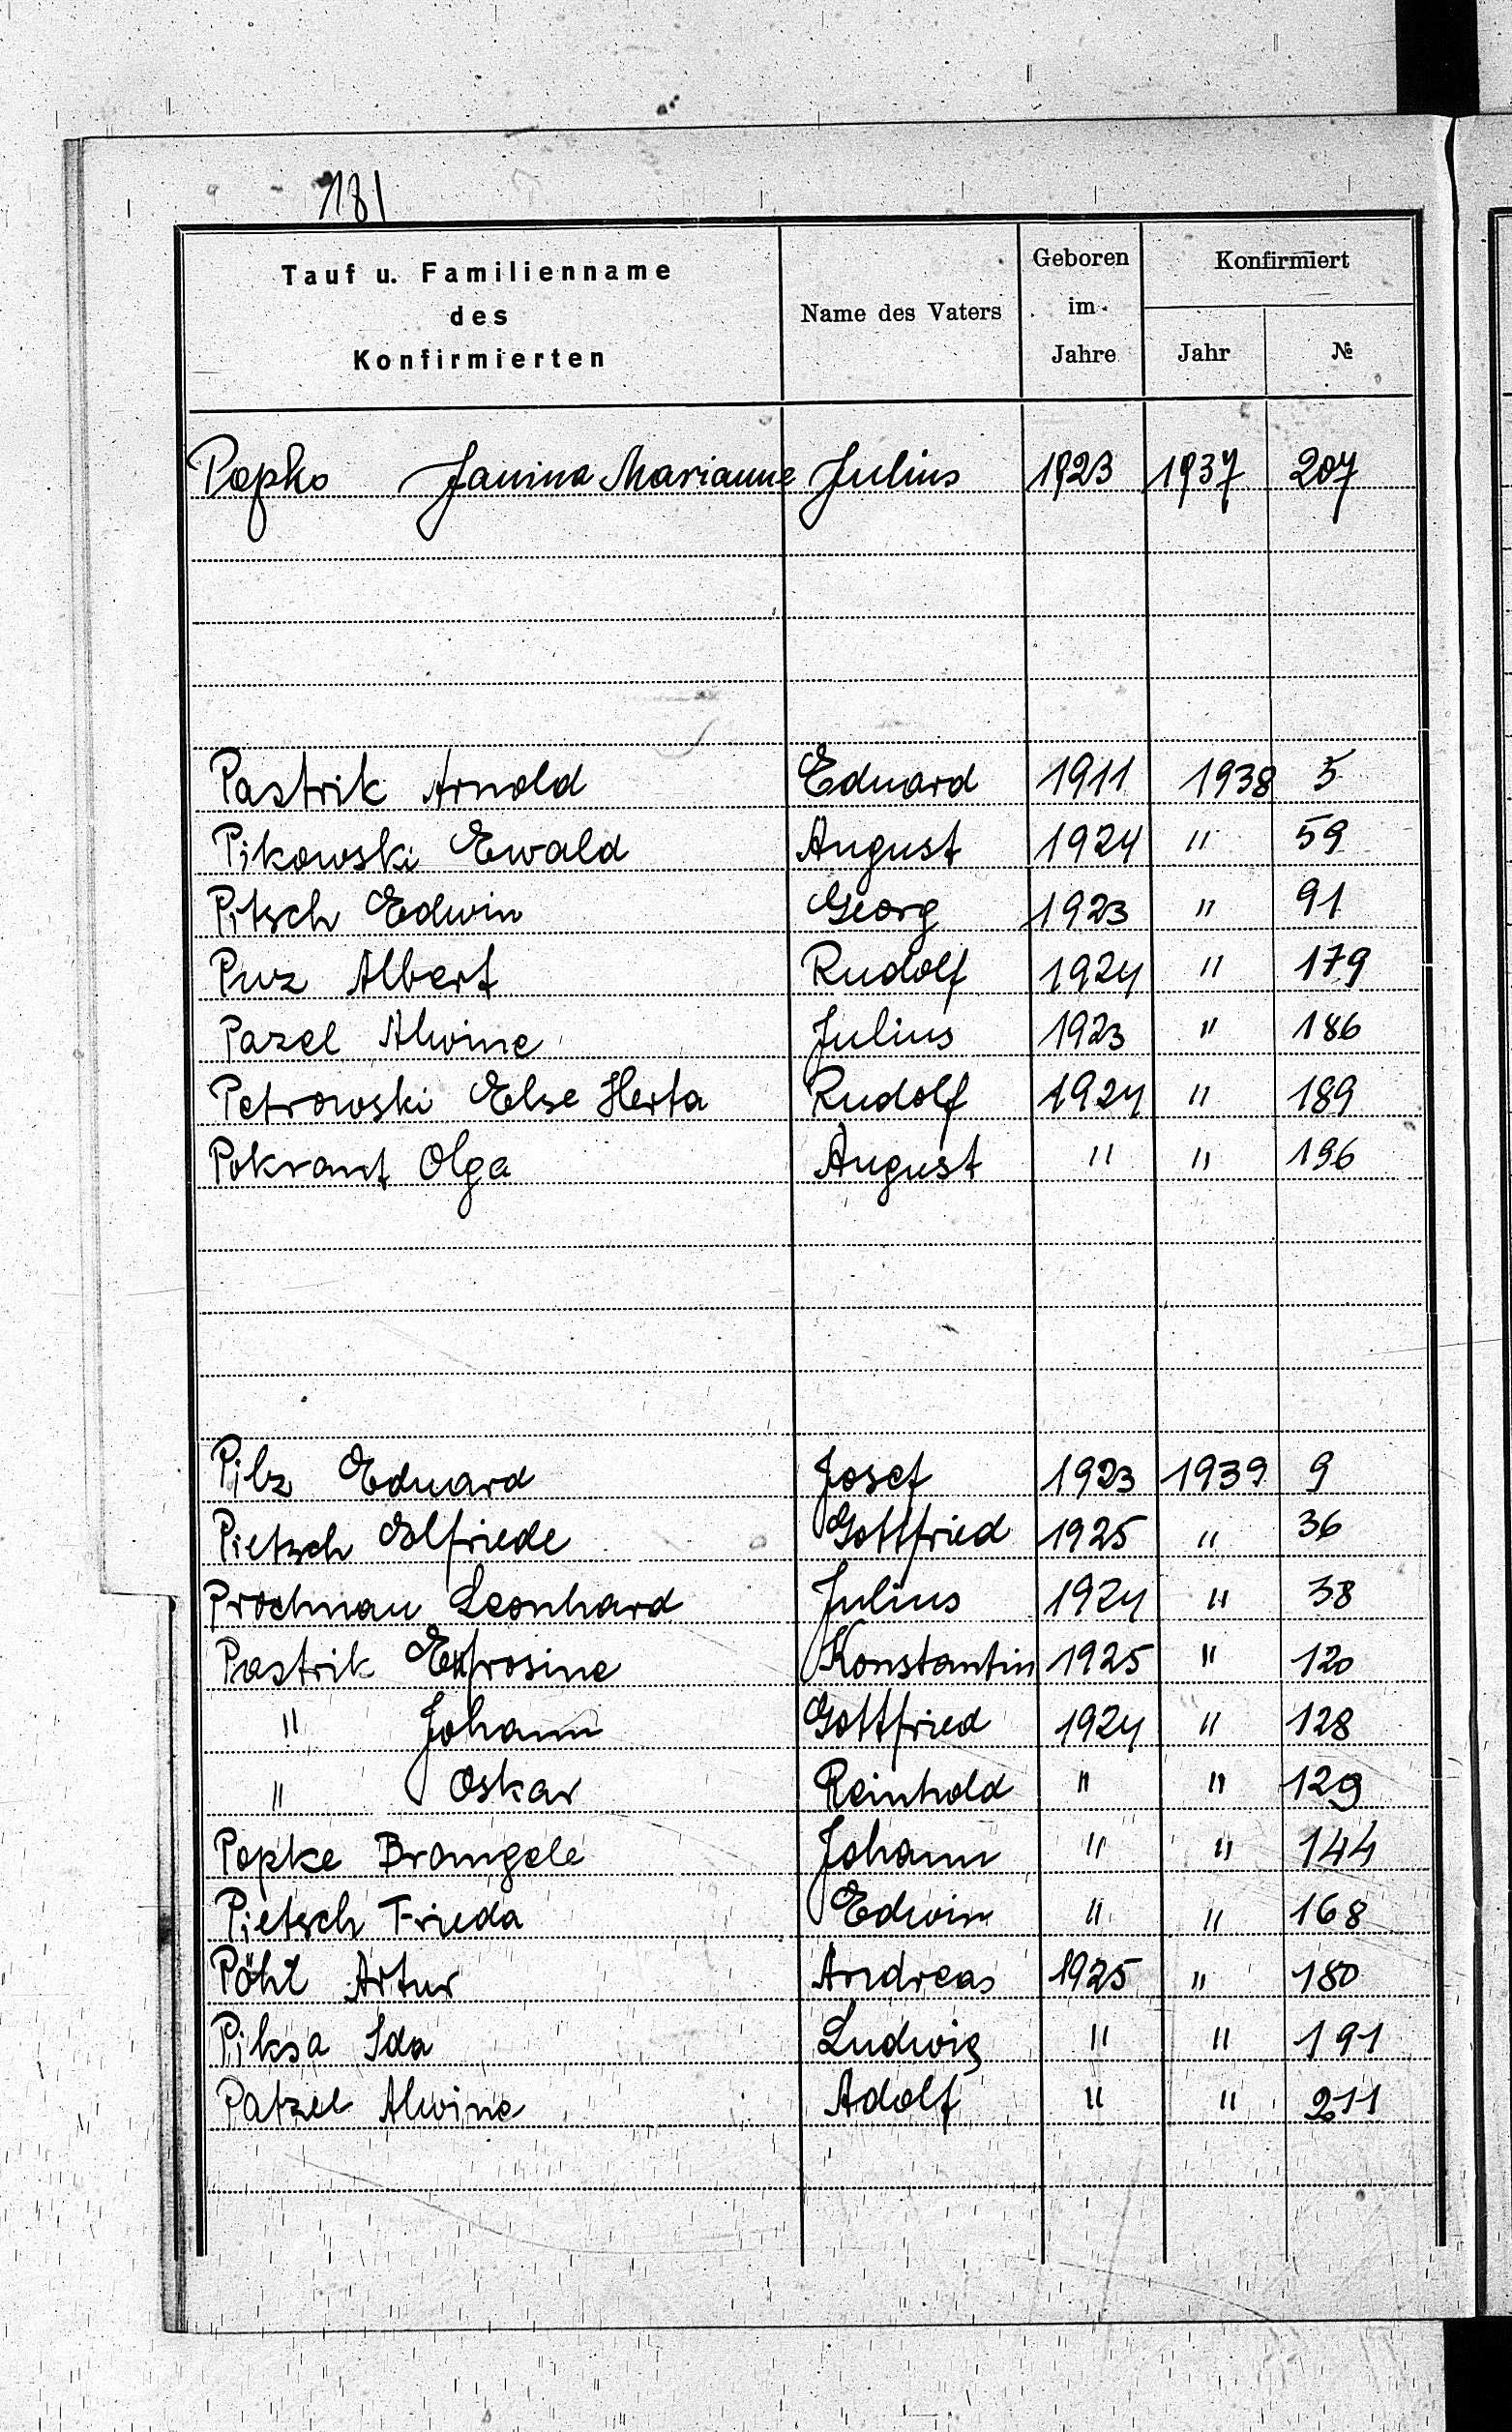 181
Tauf u. Familienname
des
Konfirmierten
Name des Vaters
Geboren
im
Jahre
Konfirmiert
Jahr
№
Popko Janina Marianne Julius 1923 1937 207
Pastrik Arnold Eduard 1911 1938 5
Pikowski Ewald August 1924 " 59
Pitsch Edwin Georg 1923 " 91
Puz Albert Rudolf 1924 " 179
Pazel Alwine Julius 1923 " 186
Petrowski Else Herta Rudolf 1924 " 189
Pokrant Olga August " " 196
Pilz Eduard Josef 1923 1939 9
Pietzch Elfriede Gottfried 1925 " 36
Prochnau Leonhard Julius 1924 " 38
Pastrik Eufrosine Konstantin 1925 " 120
" Johann Gottfried 1924 " 128
" Oskar Reinhold " " 129
Popke Johann " " 144
Pietsch Frieda Edwin " " 168
Pöhl Artur Andreas 1925 " 180
Piksa Ida Ludwig " " 191
Patzel Alwine Adolf " " 211